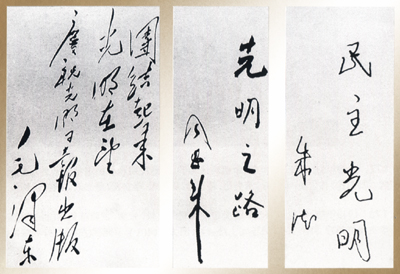 團結起来
光明在望
慶祝光明日報出版
毛澤东
光明之路
周恩来
民主光明
朱德